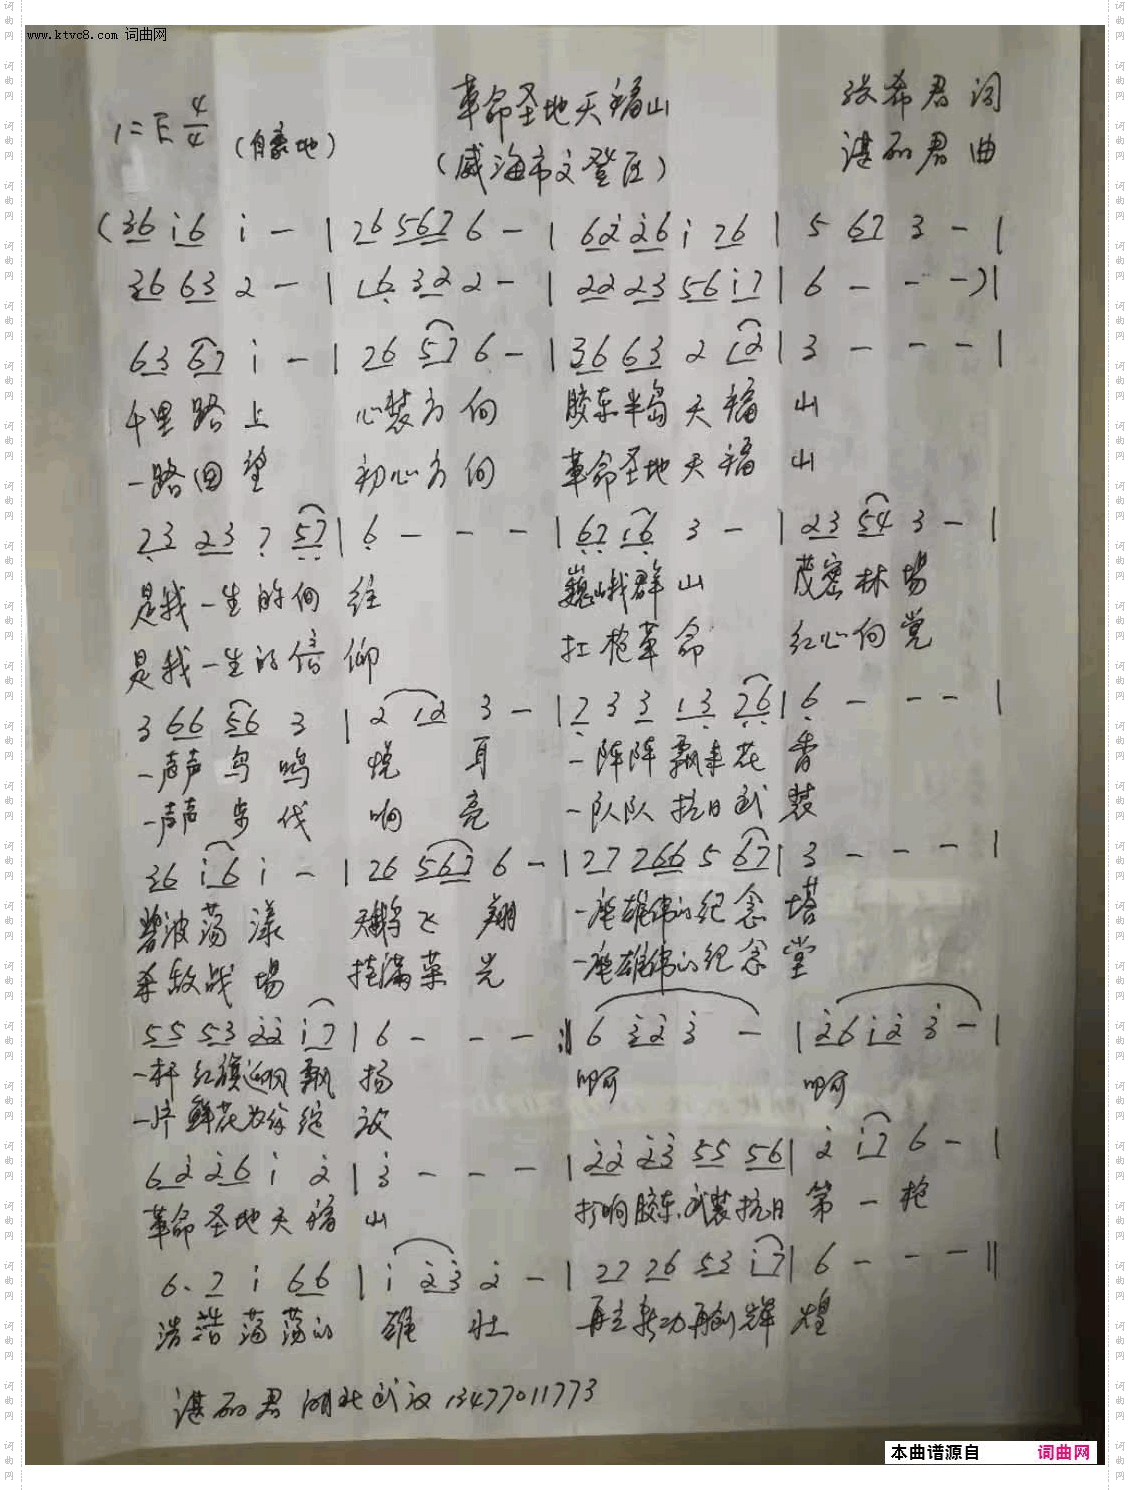 www.ktvc8.com 词曲网
革命圣地天福山
张希君 词
1=E 4/4 (自豪地)
(威海市文登区)
谌丽君 曲
(36 i6 i - | 26 567 6 - | 62 26 i 76 | 5 67 3 - |
36 63 2 - | 16 32 2 - | 22 23 56 i7 | 6 - - -)|
63 67 i - | 26 57 6 - | 36 63 2 12 | 3 - - - |
千里路上 心装方向 胶东半岛天福山
一路回望 初心方向 革命圣地天福山
23 23 7 57 | 6 - - - | 67 16 3 - | 23 54 3 - |
是我一生的向往 巍峨群山 茂密林场
是我一生的信仰 扛枪革命 红心向党
3 66 56 3 | 2 12 3 - | 2 3 3 13 76 | 6 - - - |
一声声鸟鸣悦耳 一阵阵飘来花香
一声声步伐响亮 一队队抗日武装
36 i6 i - | 26 567 6 - | 27 266 5 67 | 3 - - - |
碧波荡漾 天鹅飞翔 一座雄伟的纪念塔
杀敌战场 挂满荣光 一座雄伟的纪念堂
55 53 22 i7 | 6 - - - :‖ 6 32 3 - | 26 i2 3 - |
一杆红旗迎风飘扬 啊 啊
一片鲜花为你绽放
62 26 i 2 | 3 - - - | 22 23 55 56 | 2 i7 6 - |
革命圣地天福山 打响胶东武装抗日第一枪
6. 7 i 66 | i 23 2 - | 27 26 53 i7 | 6 - - - ‖
浩浩荡荡的雄壮 再立新功再创辉煌
谌丽君 湖北武汉 13477011773
本曲谱源自 词曲网